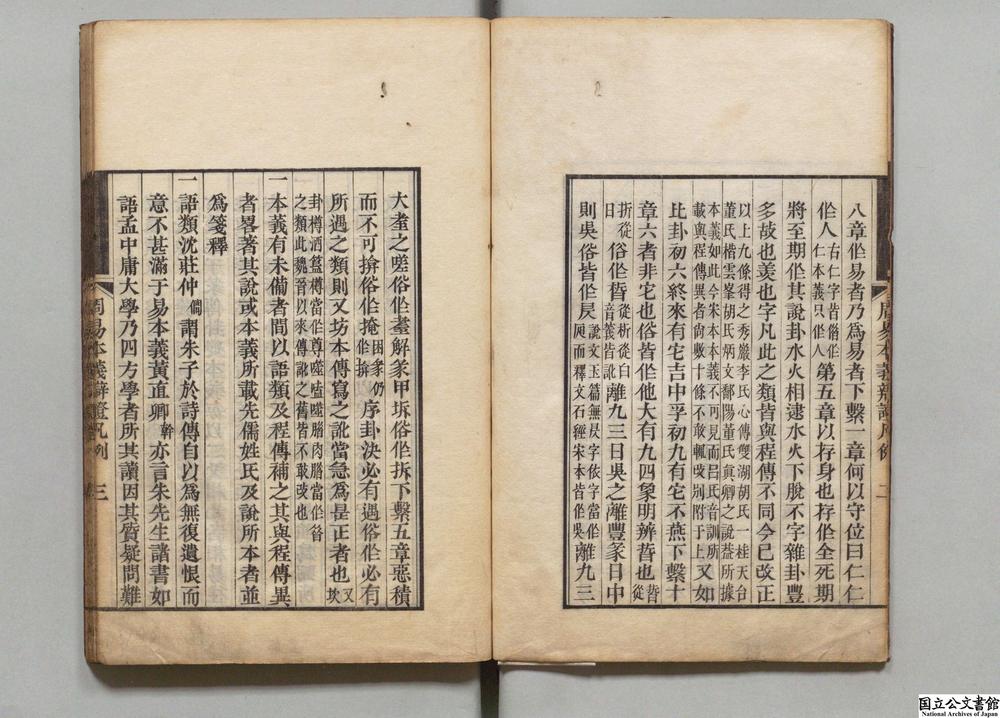 八章作易者乃爲易者下繫一章何以守位曰仁仁
作人右仁字皆俗作仁本義只作人第五章以存身也存作全死期
將至期作其說卦水火相逮水火下脫不字雜卦豐
多故也羨也字凡此之類皆與程傳不同今已改正
以上九條得之秀巖李氏心傳雙湖胡氏一桂天台
董氏楷雲峯胡氏炳文鄱陽董氏真卿之說葢所據
本義如此今宋本本義不可見而呂氏音訓所
載與程傳異者尙數十條不敢輒改別附于上又如
比卦初六終來有它吉中孚初九有它不燕下繫十
章六者非它也俗皆作他大有九四象明辨晢也晢從
折從日俗作晳晳從析從白音義皆訛離九三日昃之離豐彖日中
則昃俗皆作昃說文玉篇無昃字依字當作𣅳而釋文石經宋本皆作昃離九三
大耋之嗟俗作耊解彖甲坼俗作拆下繫五章惡積
而不可揜俗作掩困彖仍俗作揜序卦決必有遇俗作必有
所遇之類則又坊本傳寫之訛當急爲是正者也又坎
卦樽酒簋樽當作尊噬嗑噬腊肉腊當作昝
之類此魏晉以來傳訛之舊皆不敢改也
一本義有未備者間以語類及程傳補之其與程傳異
者畧著其說或本義所載先儒姓氏及說所本者並
爲箋釋
一語類沈莊仲僩謂朱子於詩傳自以爲無復遺恨而
意不甚滿于易本義黃直卿榦亦言朱先生諸書如
語孟中庸大學乃四方學者所共讀因其質疑問難
周易本義辨證凡例 二
周易本義辨證凡例 三
国立公文書館
National Archives of Japan